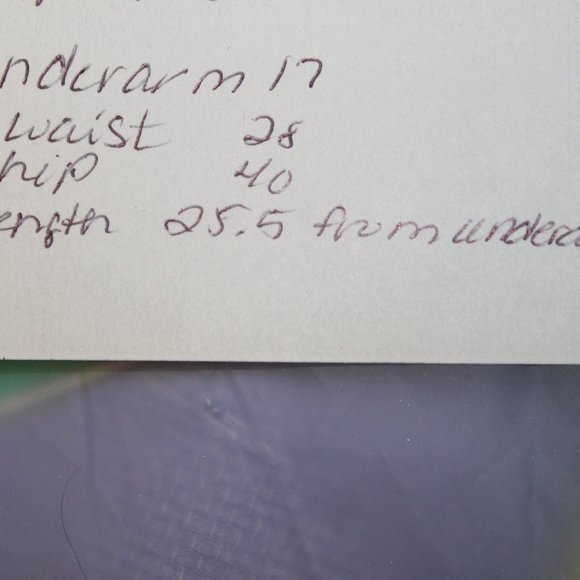 nderarm 17
waist 28
hip 40
ength 25.5 from undera